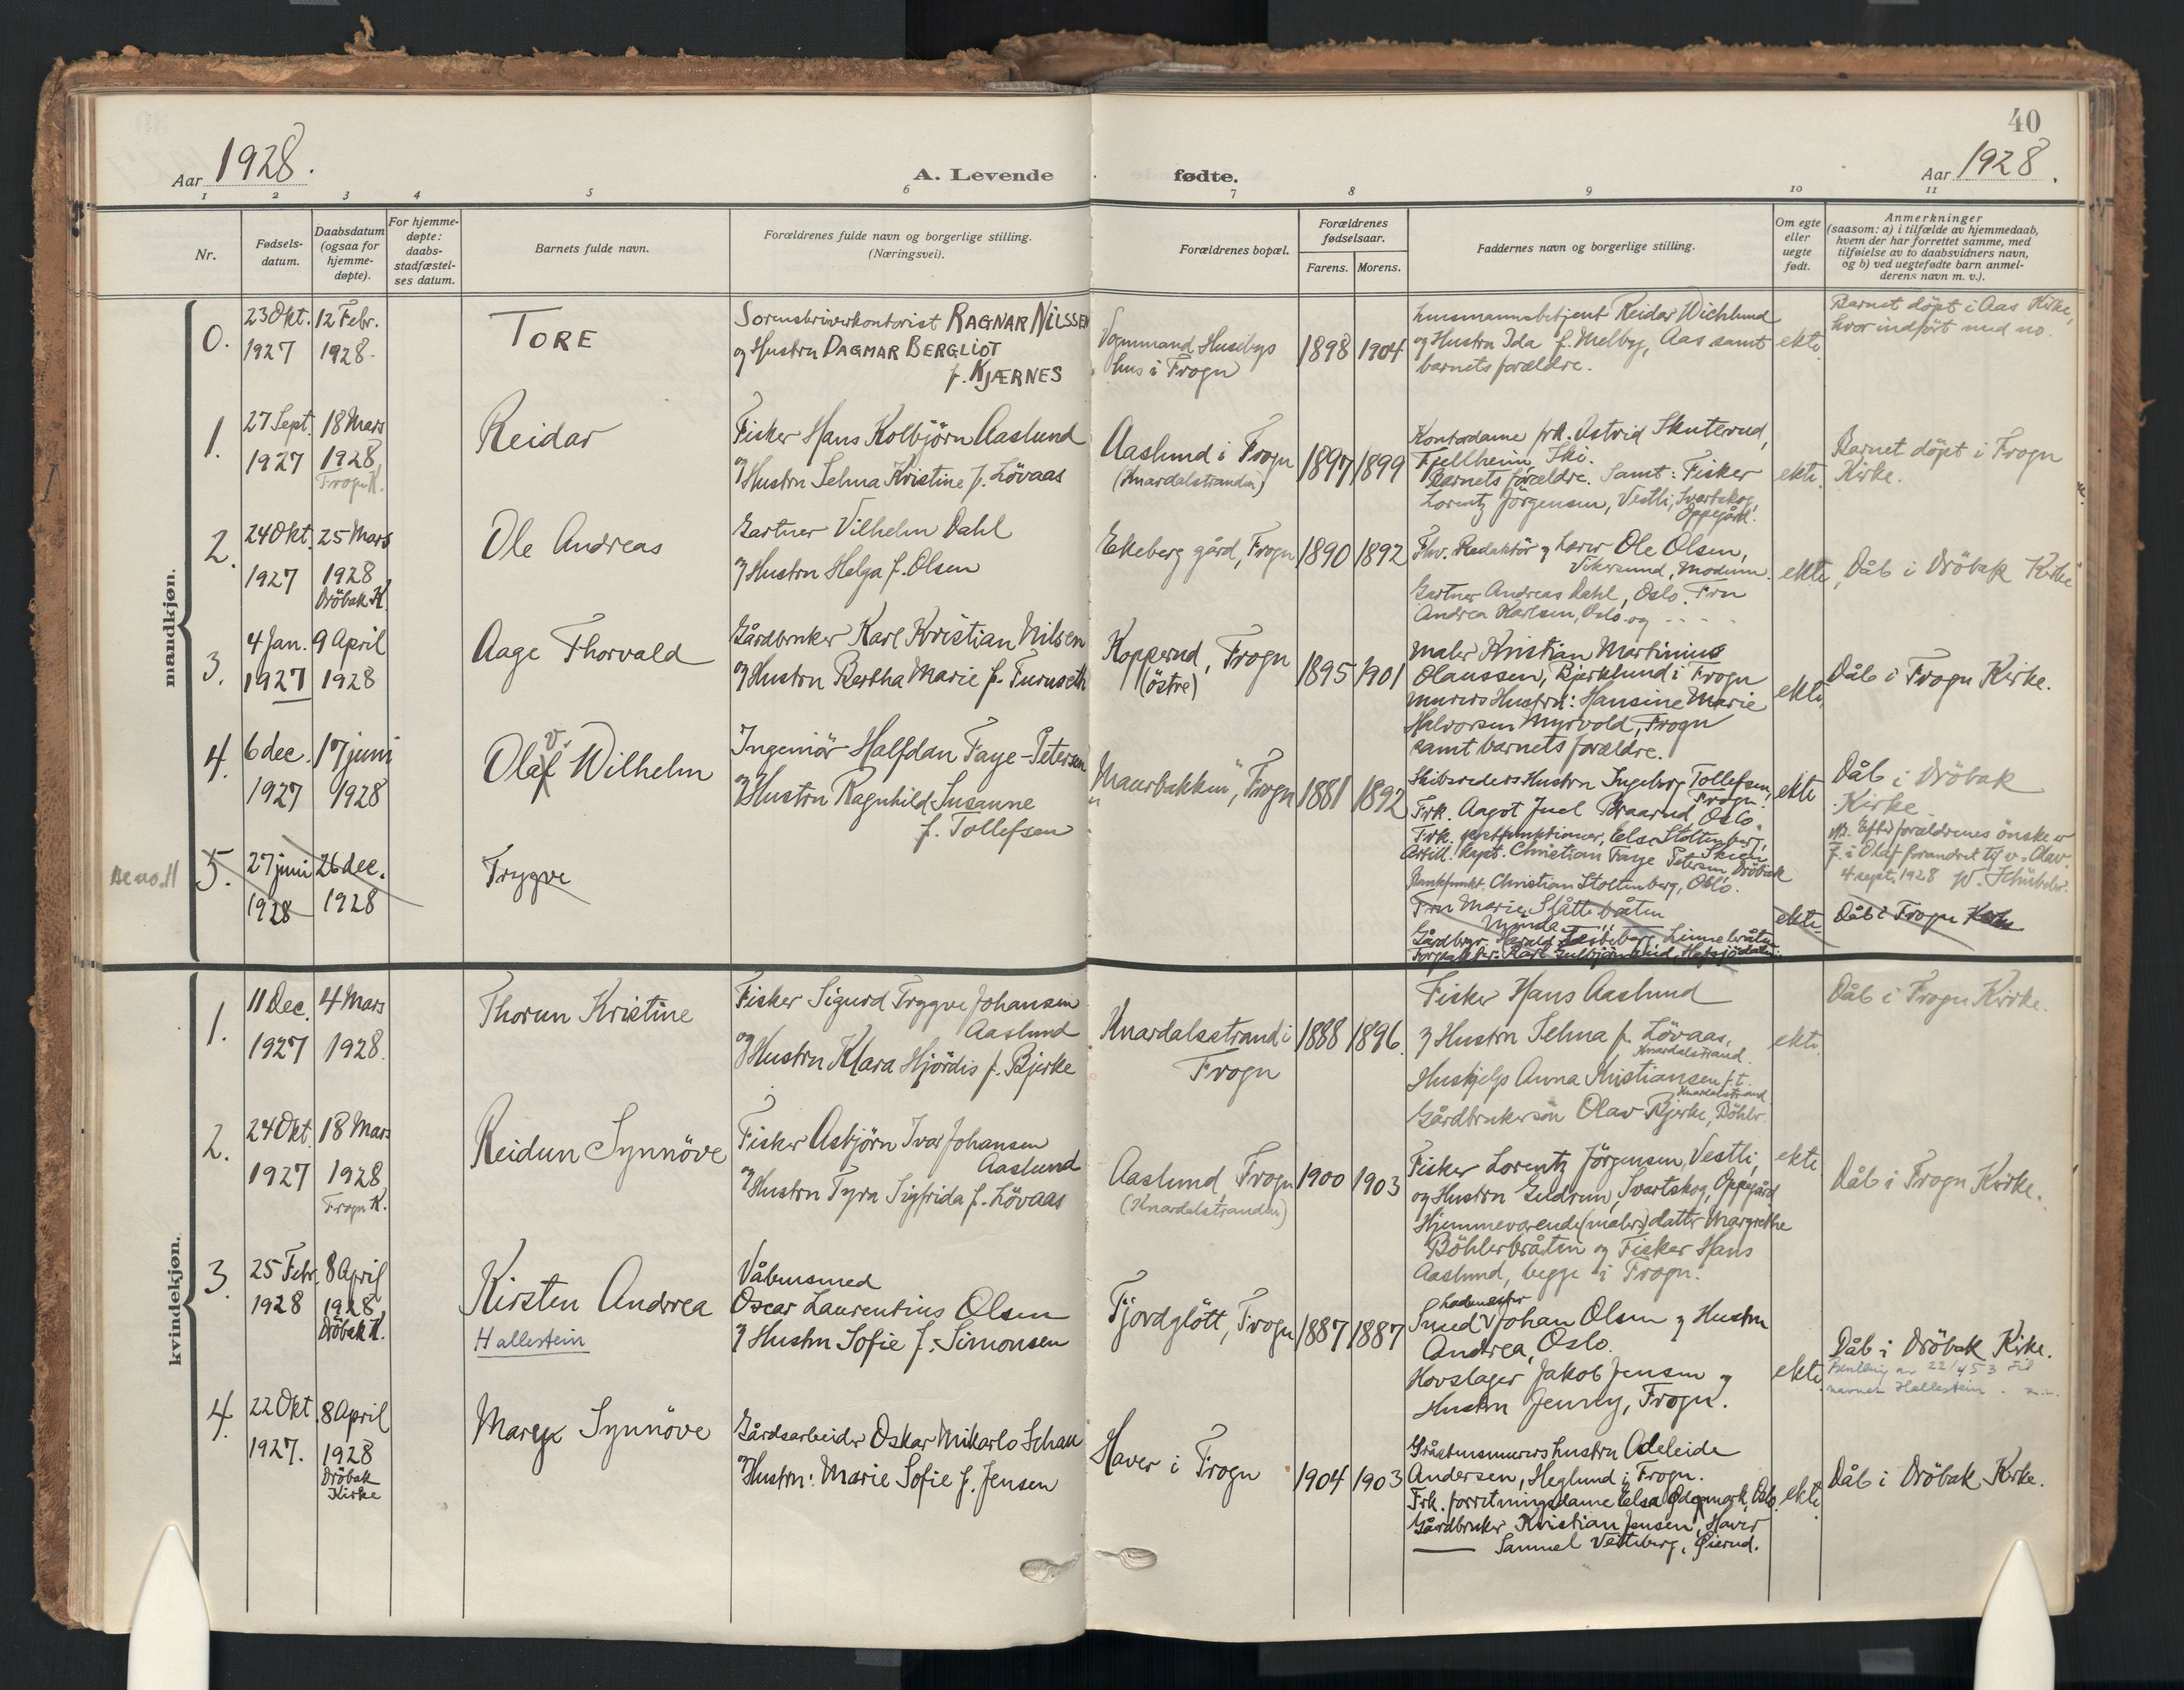 40
Aar 1928.
A. Levende fødte.
Aar 1928.
1 2 3 4 5 6 7 8 9 10 11
Nr.
Fødsels-
datum.
Daabsdatum
(ogsaa for
hjemme-
døpte).
For hjemme-
døpte:
daabs-
stadfæstel-
ses datum.
Barnets fulde navn.
Forældrenes fulde navn og borgerlige stilling.
(Næringsvei).
Forældrenes bopæl.
Forældrenes
fødselsaar.
Farens. Morens.
Faddernes navn og borgerlige stilling.
Om egte
eller
uegte
født.
Anmerkninger
(saasom: a) i tilfælde av hjemmedaab,
hvem der har forrettet samme, med
tilføielse av to daabsvidners navn,
og b) ved uegtefødte barn anmel-
derens navn m. v.).
mandkjøn.
0.
23 Okt.
1927
12 Febr.
1928.
TORE
Sorenskriverkontorist RAGNAR NILSSEN
og Hustru DAGMAR BERGLIOT
f. KJÆRNES
Vognmand Husebys
hus i Frogn
1898 1904
Lensmannsbetjent Reidar Wichlund
og Hustru Ida f. Melby, Aas samt
barnets forældre.
ekte
Barnet döpt i Aas Kirke,
hvor indført med no.
1.
27 Sept.
1927
18 Mars
1928
Frogn K.
Reidar
Fisker Hans Kolbjörn Aaslund
og Hustru Selma Kristine f. Lövaas
Aaslund i Frogn
(Knardalstranden)
1897 1899
Kontordame frk. Astrid Skuterud,
Fjellheim, Ski.
Barnets forældre. Samt: Fisker
Lorentz Jörgensen, Vestli, Svartskog,
Oppegård.
ekte.
Barnet döpt i Frogn
Kirke.
2.
24 Okt.
1927
25 Mars
1928
Dröbak K.
Ole Andreas
Gartner Vilhelm Dahl
og Hustru Helga f. Olsen
Ekeberg gård, Frogn
1890 1892
Fhv. Redaktör og Lærer Ole Olsen,
Vikersund, Modum.
Gartner Andreas Dahl, Oslo. Fru
Andrea Karlsen, Oslo og - - - -
ekte
Dåb i Dröbak Kirke
3.
4 Jan.
1927
9 April
1928
Aage Thorvald
Gårdbruker Karl Kristian Nilsen
og Hustru Bertha Marie f. Furuseth
Kopperud, Frogn
(östre)
1895 1901
Maler Kristian Martinius
Olaussen, Bjerklund i Frogn
Murers Hustru: Hansine Marie
Halvorsen Myrvold, Frogn
samt barnets forældre.
ekte,
Dåb i Frogn Kirke.
4.
6 dec.
1927
17 juni
1928
v.
Olaf Wilhelm
Ingeniör Halfdan Faye-Petersen
og Hustru Ragnhild Susanne
f. Tollefsen
"Maurbakken", Frogn
1881 1892
Skibsreders Hustru Ingeborg Tollefsen,
Frogn.
Frk. Aagot Juel Braarud, Oslo
Frk. postfunktionær, Else Stoltenberg,
Skien
Artill. kapt. Christian Faye Petersen, Dröbak
Bankfunkt. Christian Stoltenberg, Oslo.
ekte
Dåb i Dröbak
Kirke
NB. Efter forældrenes önske er
f. i Olaf forandret til v. Olav.
4 sept. 1928 W. Schübeler.
Se no. 11
5.
27 juni
1928
26 dec.
1928
Trygve
Fru Marie Slåttebråten
ekte
Dåb i Frogn Kirke
kvindekjøn.
1.
11 Dec.
1927
4 Mars
1928.
Thorun Kristine
Fisker Sigurd Trygve Johansen
Aaslund
og Hustru Klara Hjördis f. Bjerke
Knardalsstrand i
Frogn
1888 1896.
Fisker Hans Aaslund
og Hustru Selma f. Lövaas,
Knardalstrand.
Huskjelp Anna Kristiansen f.t.
Knardalstrand
Gårdbrukersön Olav Bjerke, Böhler.
ekte.
Dåb i Frogn Kirke.
2.
24 Okt.
1927
18 Mars
1928
Frogn K.
Reidun Synnöve
Fisker Asbjörn Ivar Johansen
Aaslund
og Hustru Tyra Sigfrida f. Lövaas
Aaslund Frogn
(Knardalstranden)
1900 1903
Fisker Lorentz Jörgensen, Vestli,
og Hustru Gudrun, Svartskog, Oppegård
Hjemmeværende (malers) datter Margrethe
Böhlerbråten og Fisker Hans
Aaslund, begge i Frogn.
ekte
Dåb i Frogn Kirke.
3.
25 Febr.
1928
8 April
1928,
Dröbak K.
Kirsten Andrea
Hallestein
Våbensmed
Oscar Laurentius Olsen
og Hustru Sofie f. Simonsen
Fjordglött, Frogn
1887 1887
Smed Johan Olsen og Hustru
Andrea, Oslo.
Hovslager Jakob Jensen og
Hustru Jenny, Frogn.
ekte
Dåb i Dröbak Kirke.
Bevilling av 22/4 53 til
navnet Hallestein.
4.
22 Okt
1927.
8 April
1928
Dröbak
Kirke
Mary Synnöve
Gårdsarbeider Oskar Mikarlo Schau
og Hustru: Marie Sofie f. Jensen
Haver i Frogn
1904 1903
Gråstensmurers hustru Adeleide
Andersen, Heglund i Frogn.
Frk. forretningsdame Elsa Ødemark, Oslo.
Gårdbruker Kristian Jensen, Haver
—— Samuel Vetteberg, Øierud.
ekte
Dåb i Dröbak Kirke.